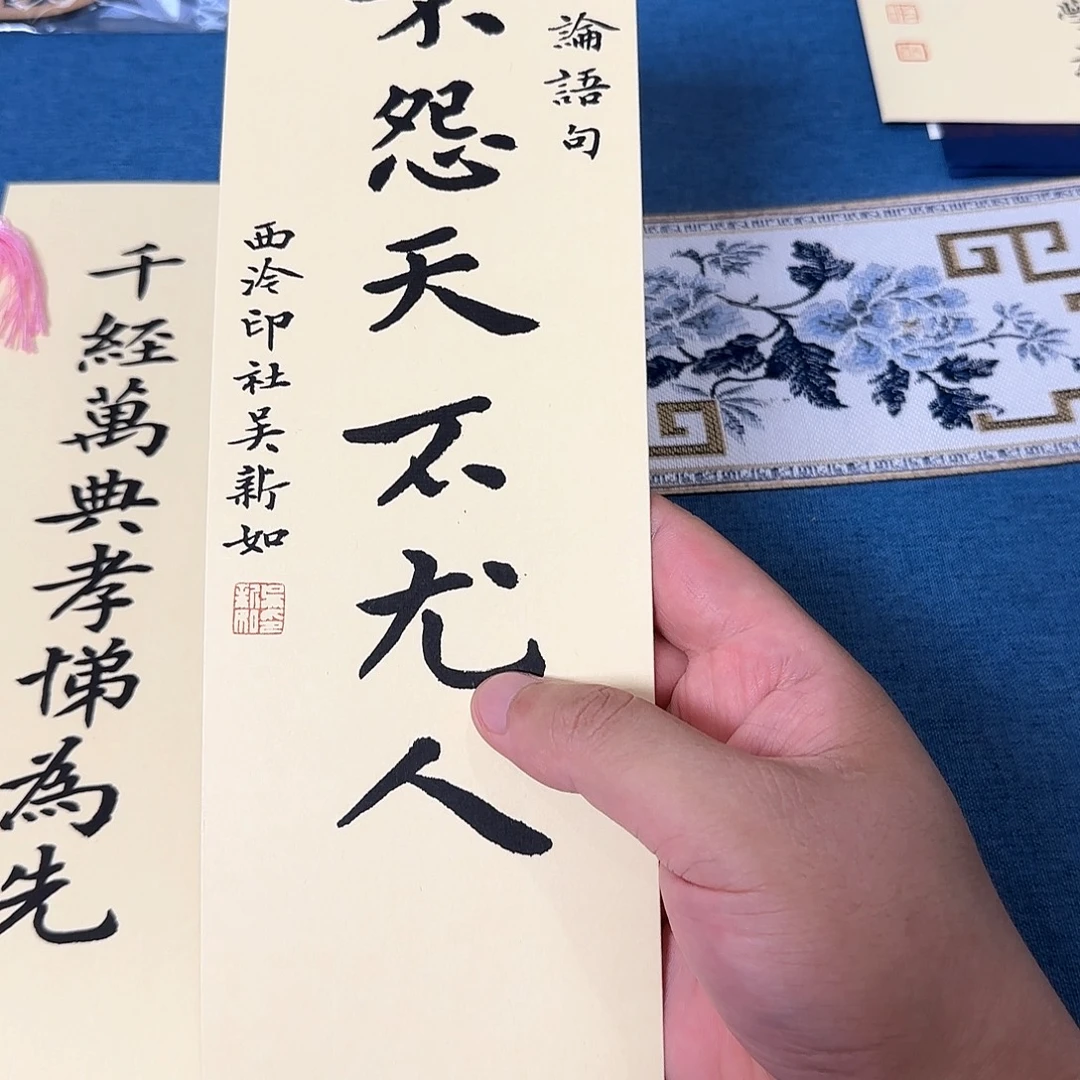 論語句
不怨天不尤人
西泠印社吳新如
千經萬典孝悌為先